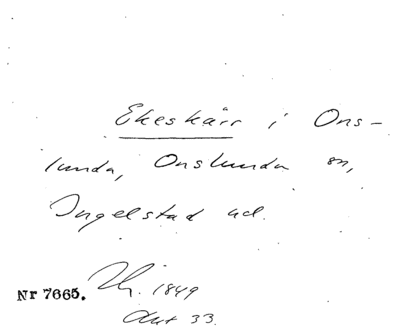 Ekeskärr i Ons-
lunda, Onslunda sn,
Ingelstad hd.
1849
Nr 7665.
Akt 33.